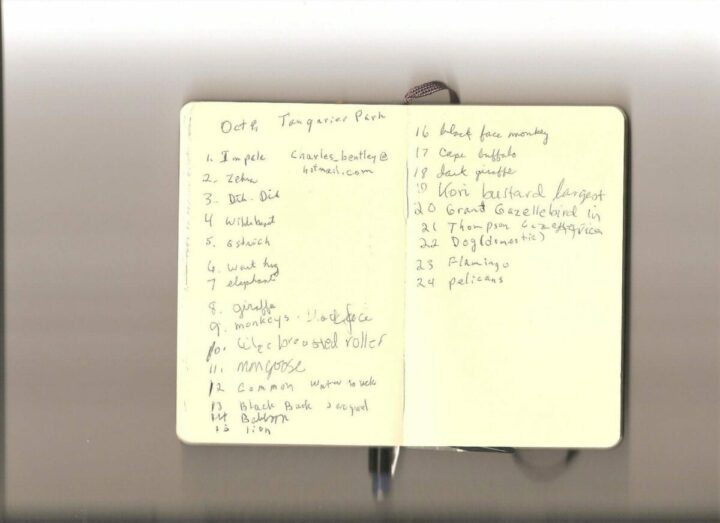 Oct 9, Tangarier Park
1. Impala Charles_bentley@
hotmail.com
2. Zebra
3. Dik. Dik
4 Wildebeest
5. ostrich
6. wart hog
7 elephant
8. giraffe
9. monkeys. black face
10. lilac breasted roller
11. mongoose
12 Common water buck
13 Black Back
14 Baboon
15 lion
16 black face monkey
17 Cape buffalo
18 dark giraffe
19 Kori bustard largest
20 Grant Gazelle bird in
21 Thompson Gazelle Africa
22 Dog (domestic)
23 Flamingo
24 pelicans